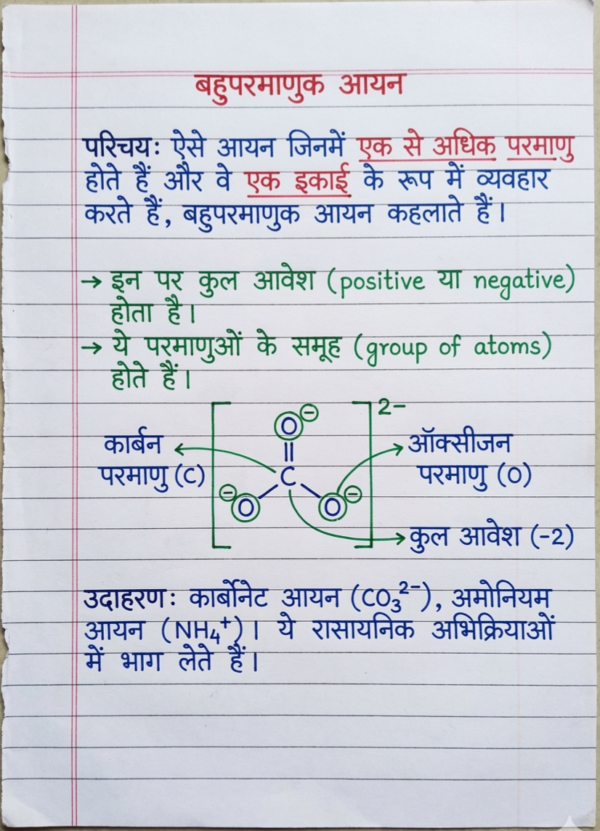 बहुपरमाणुक आयन
परिचयः ऐसे आयन जिनमें एक से अधिक परमाणु
होते हैं और वे एक इकाई के रूप में व्यवहार
करते हैं, बहुपरमाणुक आयन कहलाते हैं।
→ इन पर कुल आवेश (positive या negative)
होता है।
→ ये परमाणुओं के समूह (group of atoms)
होते हैं।
2−
O −
कार्बन
परमाणु (C)
C
− O
O −
ऑक्सीजन
परमाणु (O)
कुल आवेश (-2)
उदाहरणः कार्बोनेट आयन (CO₃²⁻), अमोनियम
आयन (NH₄⁺)। ये रासायनिक अभिक्रियाओं
में भाग लेते हैं।